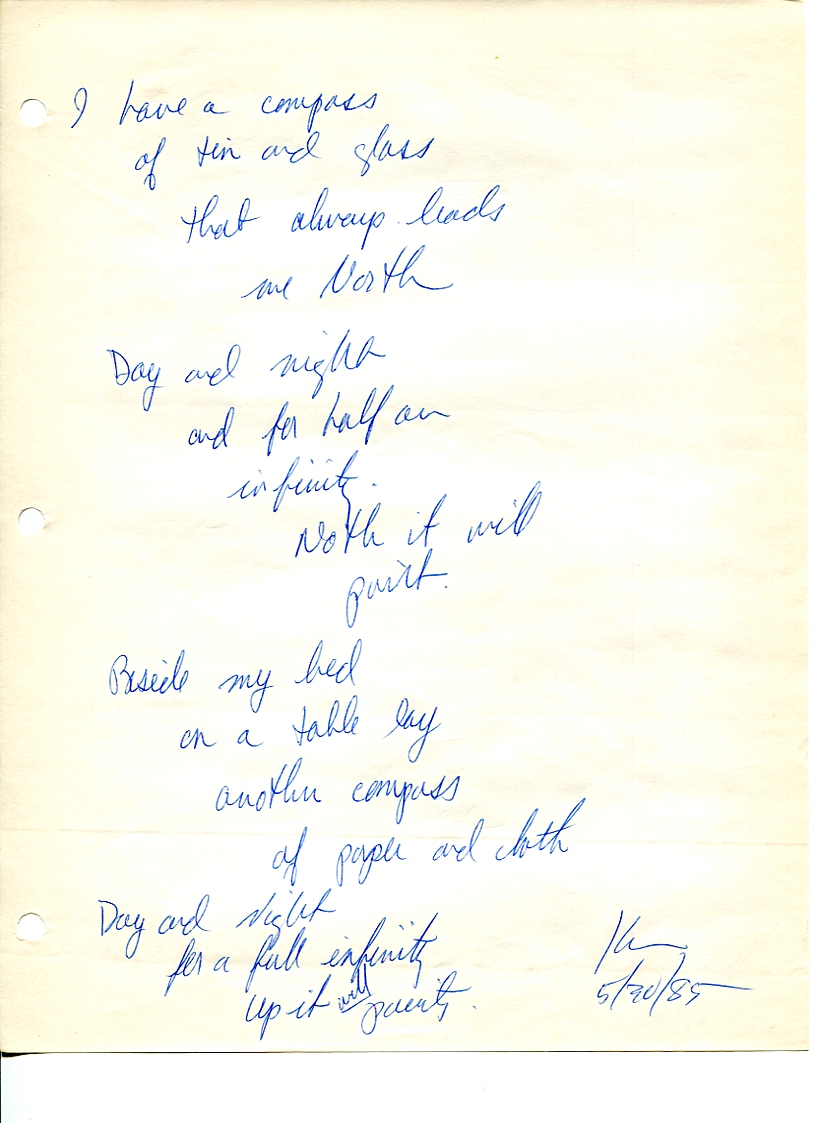 I have a compass
of tin and glass
that always leads
me North
Day and night
and for half an
infinity.
North it will
point.
Beside my bed
on a table lay
another compass
of paper and cloth
Day and Night
for a full infinity
up it will points.
5/30/85